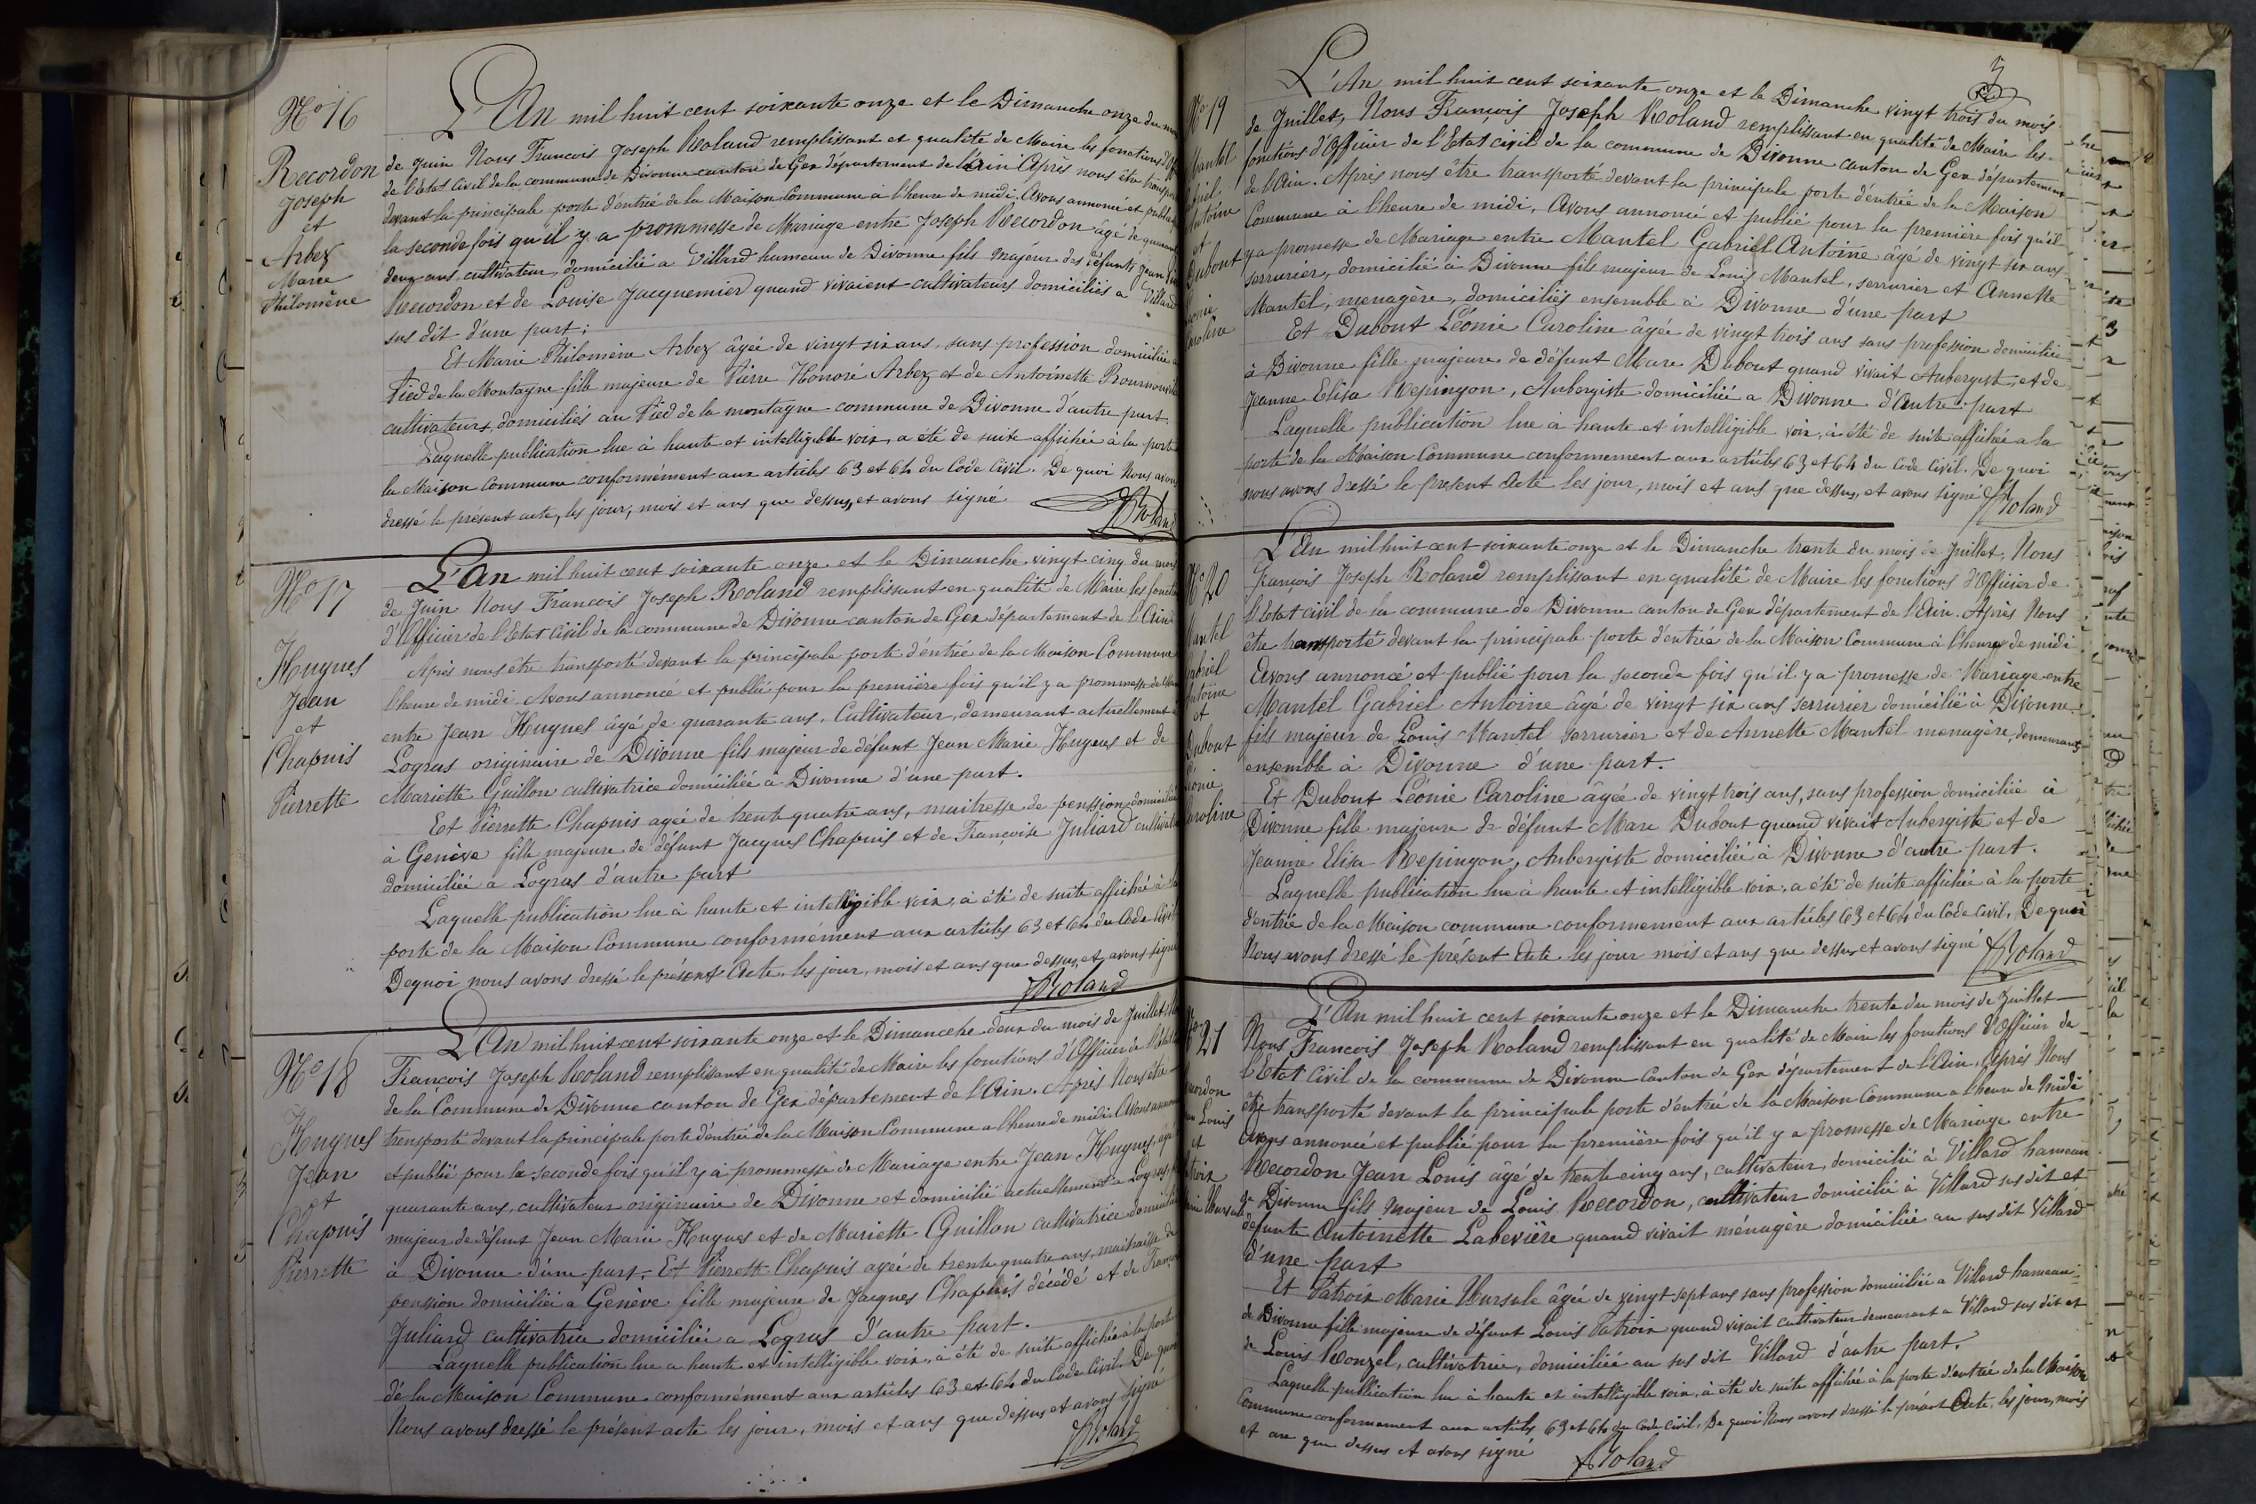 No 16
Recordon
Joseph
et
Arbez
Marie
Philomène
L'An mil huit cent soixante onze et le Dimanche onze du
de Juin Nous Francois Joseph Roland remplissant et qualité de Maire les fonctions
de l'Etat Civil de la commune de Divonne canton de Gex département de l'Ain Après nous être
devant la principale porte d'éntrée de la Maison Commune à l'heure de midi. Avons annoncé et
la seconde fois qu'il y a prommesse de Mariage entre Joseph Recordon âgé de
deux ans cultivateur, domicilié a Villard hameau de Divonne fils Majeur des défunts Jean
Recordon et de Louise Jacquemier quand vivaient cultivateurs domiciliés a Villard
sus dit d'une part;
Et Marie Philomène Arbez âgée de vingt six ans, sans profession domiciliée
Pied de la Montagne fille majeure de Pierre Honoré Arbez et de Antoinette
cultivateurs, domiciliés au Pied de la montagne commune de Divonne d'autre part.
Laquelle publication lue à haute et intelligible voix, a été de suite affichée à la porte
la Maison Commune conformément aux articles 63 et 64 du Code Civil. De quoi Nous avons
dressé le présent acte, les jour, mois et ans que dessus, et avons signé
Roland
No 17
Hugues
Jean
et
Chapuis
Pierrette
L'An mil huit cent soixante onze et le Dimanche vingt cinq du mois
de Juin Nous Francois Joseph Roland remplissant en qualité de Maire les
d'Officier de l'Etat Civil de la commune de Divonne canton de Gex département de l'Ain
Après nous être transporté devant la principale porte d'éntrée de la Maison Commune
l'heure de midi Avons annoncé et publié pour la première fois qu'il y a prommesse de
entre Jean Hugues âgé de quarante ans, Cultivateur, demeurant actuellement
Logras originaire de Divonne fils majeur de défunt Jean Marie Hugues et de
Mariette Guillon cultivatrice domiciliée à Divonne d'une part.
Et Pierrette Chapuis agée de trent quatre ans, maitresse de penssion domiciliée
à Genève fille majeure de défunt Jacques Chapuis et de Françoise Juliard
domiciliée a Logras d'autre part
Laquelle publication lue à haute et intelligible voix, a été de suite affichée à la
porte de la Maison Commune conformément aux articles 63 et 64 du Code Civil
Dequoi nous avons dressé le présent Acte les jour, mois et ans que dessus, et avons signé
Roland
No 18
Hugues
Jean
et
Chapuis
Pierrette
L'An mil huit cent soixante onze et le Dimanche deux du mois de Juillet
François Joseph Roland remplissant en qualité de Maire les fonctions d'Officier de
de la Commune de Divonne canton de Gex département de l'Ain. Après Nous être
transporté devant la principale porte d'éntrée de la Maison Commune a l'heure de midi. Avons
et publié pour la seconde fois qu'il y a prommesse de Mariage entre Jean Hugues,
quarante ans, cultivateur originaire de Divonne et domicilié actuellement a Logras
majeur de défunt Jean Marie Hugues et de Mariette Guillon cultivatrice
à Divonne d'une part. Et Pierrette Chapuis agée de trente quatre ans, maitraisse de
pension domiciliée a Genève fille majeure de Jacques Chapuis décédé et de
Juliard cultivatrice domiciliée a Logras d'autre part.
Laquelle publication lue a haute et intelligible voix, a été de suite affichée à la porte
de la Maison Commune conformément aux articles 63 et 64 du Code Civil. De quoi
Nous avons dressé le présent acte les jour, mois et ans que dessus et avons signé
Roland
3
No 19
Mantel
Antoine
et
Dubout
Caroline
L'An mil huit cent soixante onze et le Dimanche vingt trois du mois
de Juillet, Nous François Joseph Roland remplissant en qualité de Maire les
fonctions d'Officier de l'Etat civil de la commune de Divonne canton de Gex département
de l'Ain. Après nous être transporté devant la principale porte d'éntrée de la Maison
Commune à l'heure de midi, Avons annoncé et publié pour la première fois qu'il
y a promesse de Mariage entre Mantel Gabriel Antoine âgé de vingt six ans
serrurier, domicilié à Divonne fils majeur de Louis Mantel, serrurier et Annette
Mantel, menagère, domiciliés ensemble à Divonne d'une part
Et Dubout Léonie Caroline âgée de vingt trois ans sans profession domiciliée
à Divonne fille majeure de défunt Marc Dubout quand vivait Aubergiste, et de
Jeanne Elisa Repingon, Aubergiste domiciliée a Divonne d'autre part
Laquelle publication lue à haute et intelligible voix, à été de suite affichée a la
porte de la Maison Commune conformement aux articles 63 et 64 du Code Civil. De quoi
nous avons dressé le present Acte les jour, mois et ans que dessus, et avons signé Roland
No 20
Mantel
Gabriel
Antoine
et
Dubout
Léonie
Caroline
L'An mil huit cent soixante onze et le Dimanche trente du mois de Juillet, Nous
François Joseph Roland remplissant en qualité de Maire les fonctions d'Officier de
l'Etat civil de la commune de Divonne canton de Gex département de l'Ain. Après Nous
être transporté devant la principale porte d'éntrée de la Maison Commune à l'heure de midi
Avons annoncé et publié pour la seconde fois qu'il y a promesse de Mariage entre
Mantel Gabriel Antoine âgé de vingt six ans serrurier domicilié à Divonne
fils majeur de Louis Mantel serrurier et de Annette Mantel menagère, demeurants
ensemble à Divonne d'une part.
Et Dubout Léonie Caroline âgée de vingt trois ans, sans profession domiciliée à
Divonne fille majeure de défunt Marc Dubout quand vivait Aubergiste et de
Jeanne Elisa Repingon, Aubergiste domiciliée à Divonne d'autre part.
Laquelle publication lue à haute et intelligible voix, a été de suite affichée à la porte
d'entrée de la Maison commune conformement aux articles 63 et 64 du Code Civil, De quoi
Nous avons dressé le présent Acte les jour mois et ans que dessus et avons signé Roland
No 21
Recordon
Jean Louis
et
Patroix
Marie Hursule
L'An mil huit cent soixante onze et le Dimanche trente du mois de Juillet
Nous Francois Joseph Roland remplissant en qualité de Maire les fonctions d'Officier de
l'Etat Civil de la commune de Divonne Canton de Gex département de l'Ain. Après Nous
être transporté devant la principale porte d'éntrée de la Maison Commune a l'heure de Midi
Avons annoncé et publié pour la première fois qu'il y a promesse de Mariage entre
Recordon Jean Louis âgé de trente cinq ans, cultivateur, domicilié à Villard hameau
de Divonne fils majeur de Louis Recordon, cultivateur domicilié à Villard sus dit et
défunte Antoinette Labevière quand vivait ménagère domiciliée au sus dit Villard
d'une part
Et Patroix Marie Hursule âgée de vingt sept ans sans profession domiciliée a Villard hameau
de Divonne fille majeure de défunt Louis Patroix quand vivait cultivateur demeurant a Villard sus dit et
de Louis Ronzel, cultivatrice, domiciliée au sus dit Villard d'autre part.
Laquelle publication lue à haute et intelligible voix, à été de suite affichée à la porte d'éntrée de la Maison
Commune conformement aux articles 63 et 64 du Code Civil, De quoi Nous avons dressé le présent Acte, les jour, mois
et an que dessus et avons signé
Roland